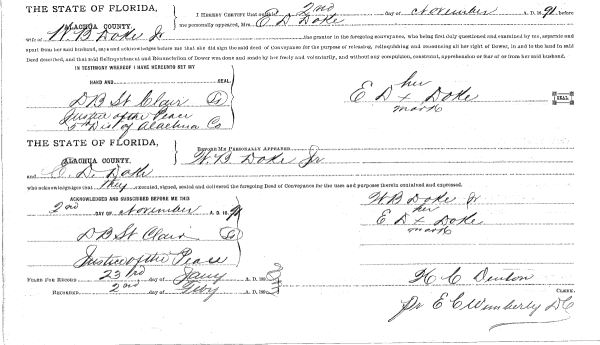 THE STATE OF FLORIDA,
ALACHUA COUNTY.
I HEREBY CERTIFY that on 2nd day of November A. D. 1891, before
me personally appeared, Mrs. E D Doke
wife of W. B Doke Jr the grantor in the foregoing conveyance, who being first duly questioned and examined by me, separate and
apart from her said husband, says and acknowledges before me that she did sign the said deed of Conveyance for the purpose of releasing, relinquishing and renouncing all her right of Dower, in and to the land in said
Deed described, and that said Relinquishment and Renunciation of Dower was done and made by her freely and voluntarily, and without any compulsion, constraint, apprehension or fear of or from her said husband.
IN TESTIMONY WHEREOF I HAVE HEREUNTO SET MY
HAND AND SEAL
D B St Clair
Justice of the Peace
Dist of Alachua Co
her
E D x Doke
mark
SEAL
THE STATE OF FLORIDA,
ALACHUA COUNTY.
BEFORE ME PERSONALLY APPEARED W. B Doke Jr
and E. D. Doke
who acknowledges that they executed, signed, sealed and delivered the foregoing Deed of Conveyance for the uses and purposes therein contained and expressed.
ACKNOWLEDGED AND SUBSCRIBED BEFORE ME THIS
2nd DAY OF November A. D. 1891
D B St Clair
Justice of the Peace
W B Doke Jr
her
E D x Doke
mark
FILED FOR RECORD 23rd day of Jany A. D. 189
RECORDED 2nd day of Feby A. D. 189
H. C. Denton
CLERK.
Pr E C Wimberly D C